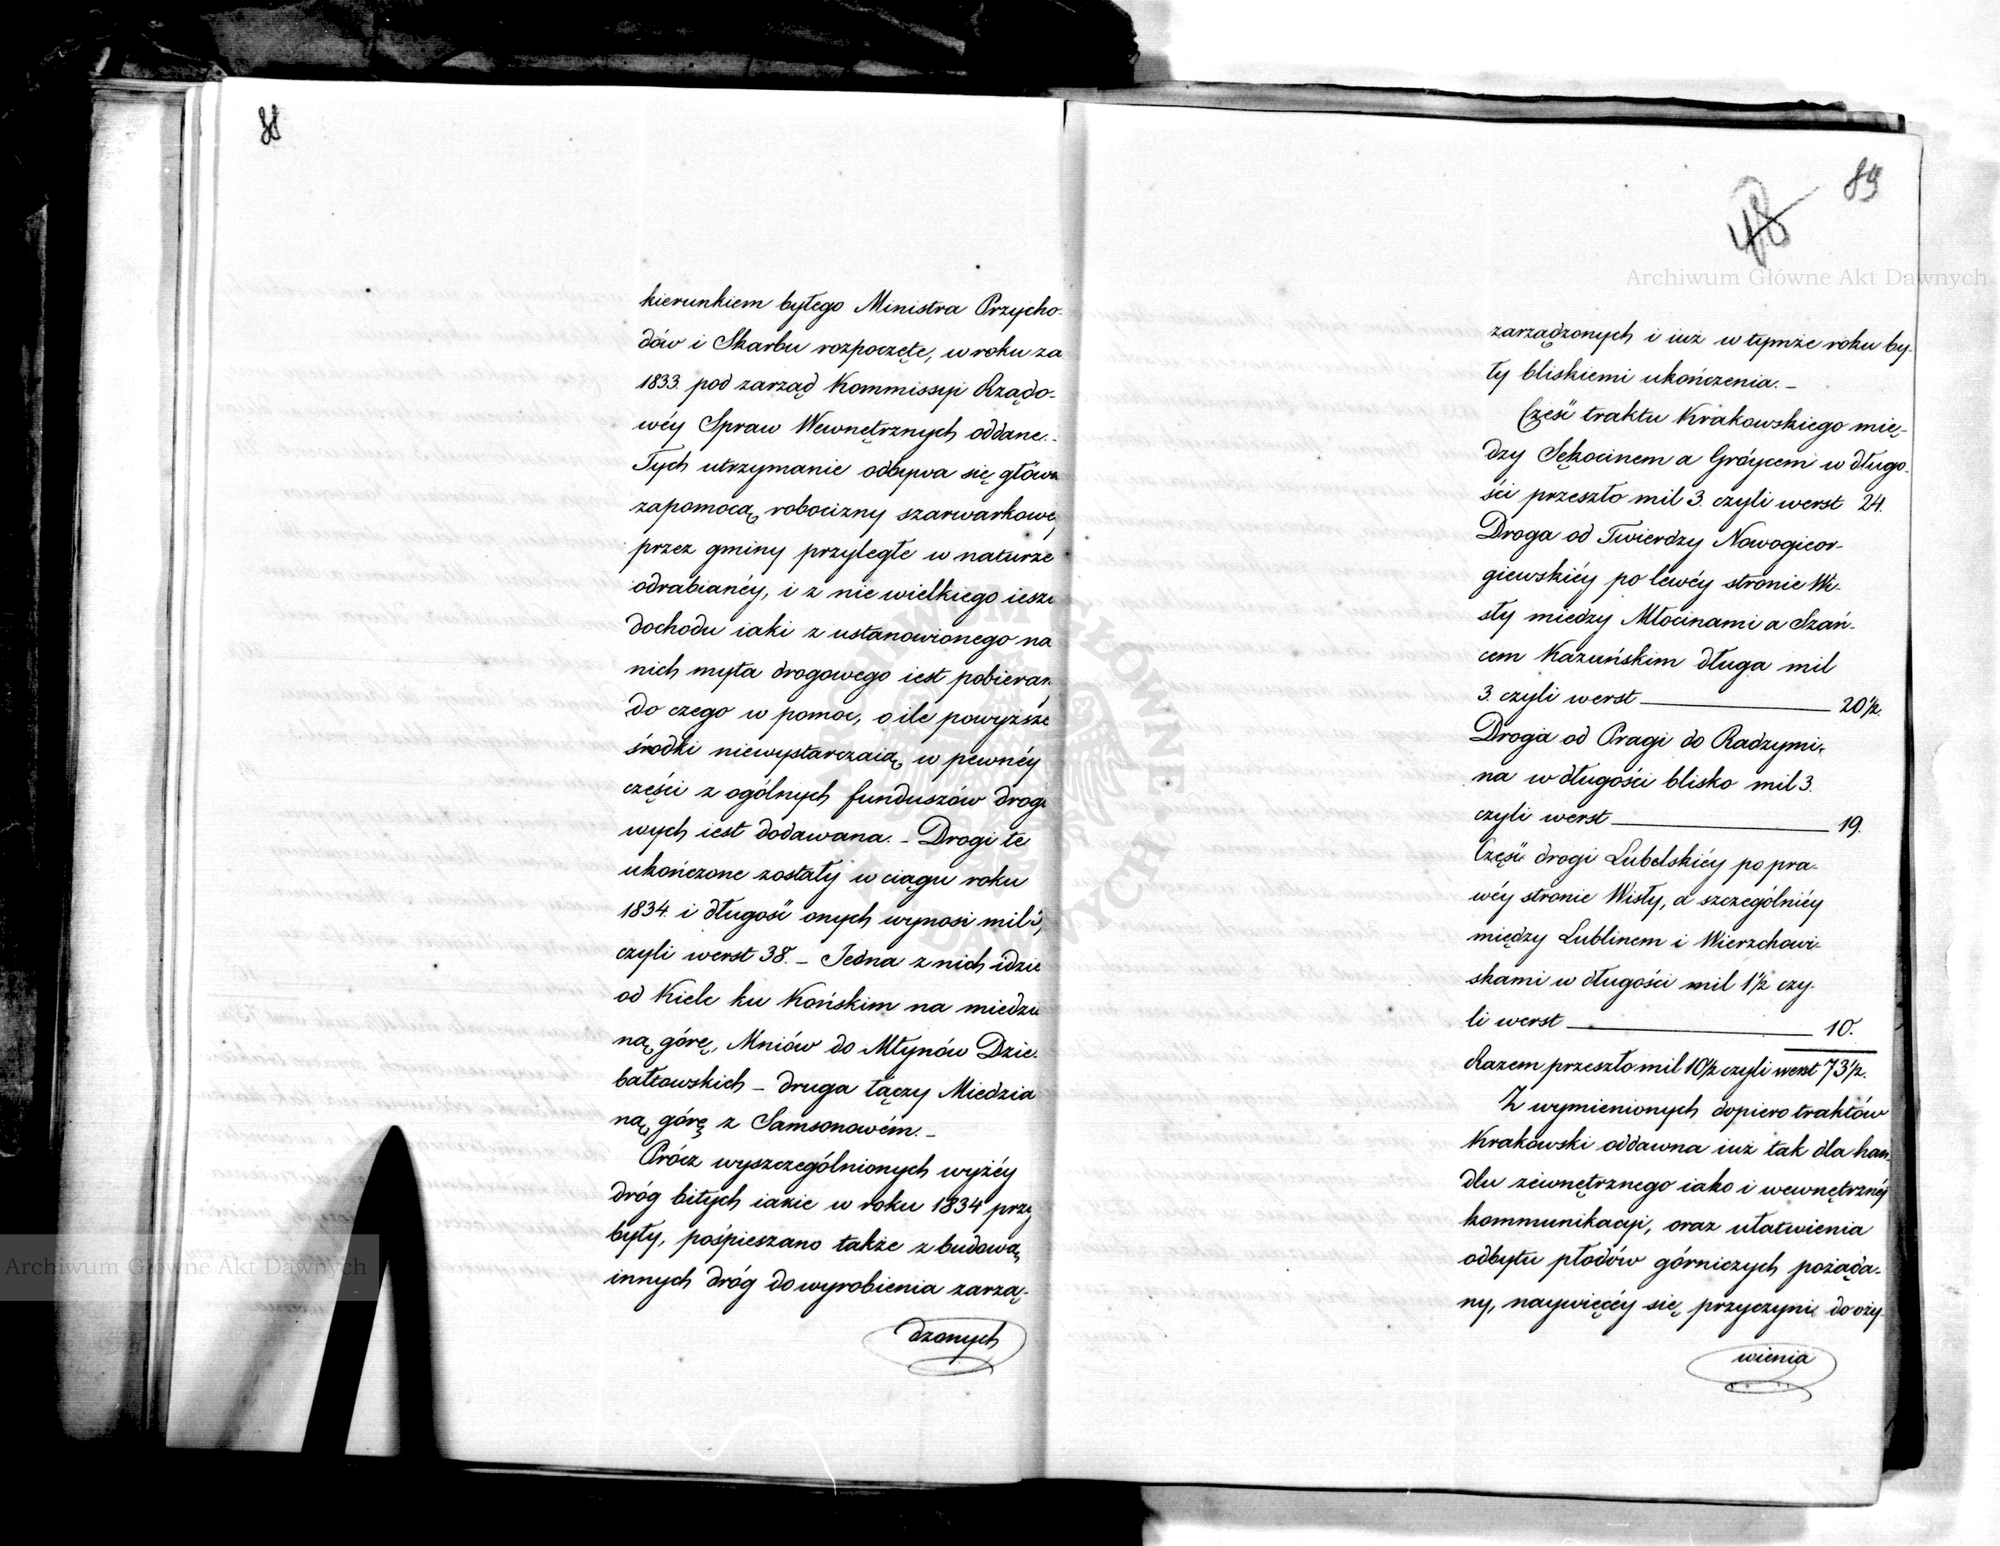 88
kierunkiem byłego Ministra Przycho-
dów i Skarbu rozpoczęte, w roku za
1833. pod zarząd Kommissyi Rządo-
wéy Spraw Wewnętrznych oddane. -
Tych utrzymanie odbywa się główn
zapomocą robocizny szarwarkowe
przez gminy przyległe w naturze
odrabianéy, i z nie wielkiego ieszc
dochodu iaki z ustanowionego na
nich myta drogowego iest pobieran
do czego w pomoc, o ile powyższe
środki niewystarczaią w pewnéy
części z ogólnych funduszów drogo
wych iest dodawana. - Drogi te
ukończone zostały w ciągu roku
1834. i długość onych wynosi mil
czyli werst 38. - Jedna z nich idzie
od Kielc ku Końskim na miedzia
ną górę, Mniów do Młynów Dzie-
bałtowskich - druga łączy Miedzia
ną górę z Samsonowém. -
Prócz wyszczególnionych wyżéy
dróg bitych iakie w roku 1834 przy
były, pośpieszano także z budową
innych dróg do wyrobienia zarzą-
dzonych
89
48
Archiwum Główne Akt Dawnych
zarządzonych i iuż w tymże roku by-
ły bliskiemi ukończenia. -
Część traktu Krakowskiego mię-
dzy Sękocinem a Gróycem w długo-
ści przeszło mil 3. czyli werst 24.
Droga od Twierdzy Nowogieor-
giewskiéy po lewéy stronie Wi-
sły miedzy Młocinami a Szań-
cem Kazuńskim długa mil
3. czyli werst 20 1/2.
Droga od Pragi do Radzymi-
na w długości blisko mil 3.
czyli werst 19.
Część drogi Lubelskiéy po pra-
wéy stronie Wisły, a szczególniéy
między Lublinem i Wierzchowi-
skami w długości mil 1 1/2 czy-
li werst 10.
Razem przeszło mil 10 1/2 czyli werst 73 1/2.
Z wymienionych dopiero traktów
Krakowski oddawna iuż tak dla han-
dlu zewnętrznego iako i wewnętrznéy
kommunikacyi, oraz ułatwienia
odbytu płodów górniczych pożąda-
ny, naywięcéy się przyczyni do oży-
wienia
Archiwum Główne Akt Dawnych
ARCHIWUM GŁÓWNE AKT DAWNYCH